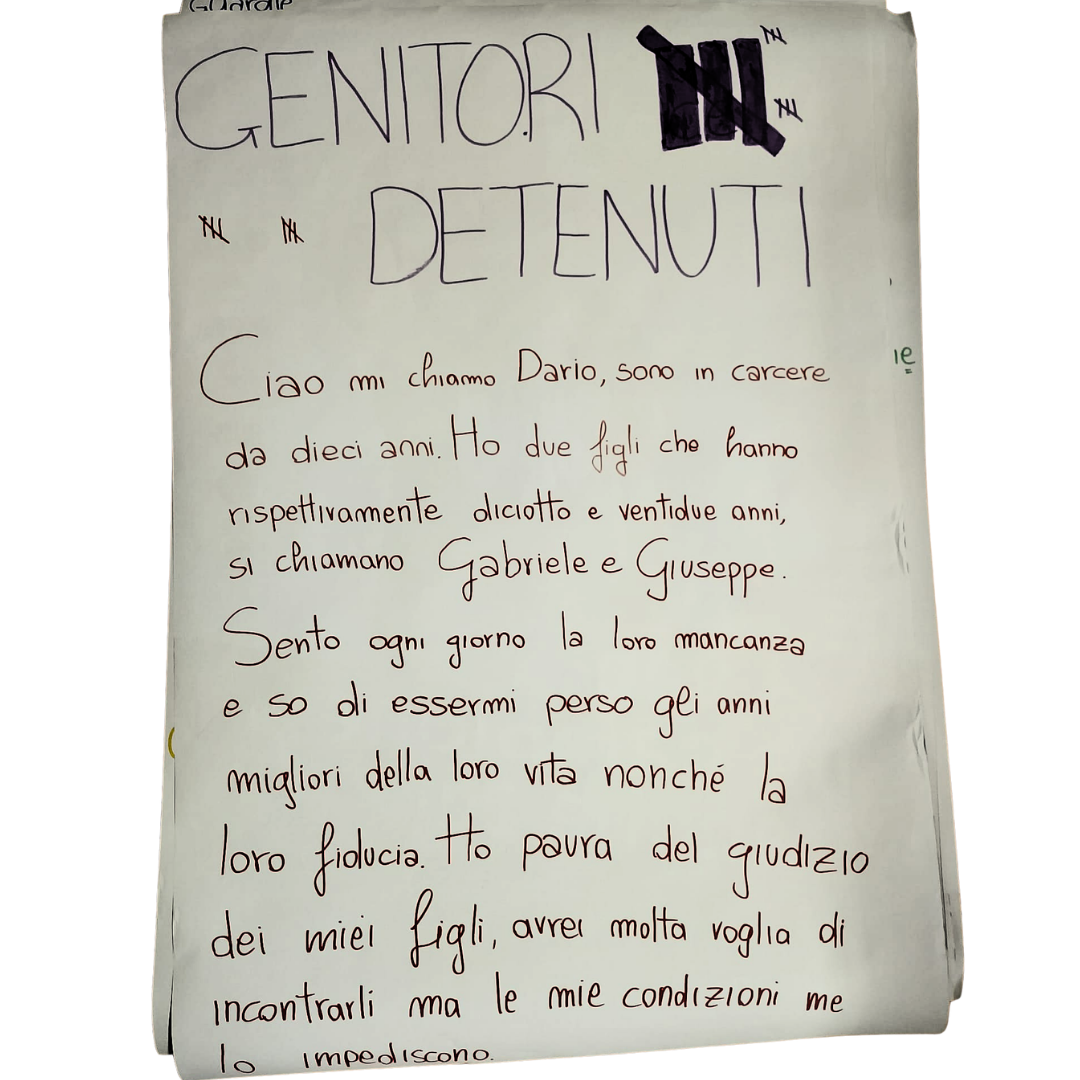 Guardie
GENITORI
DETENUTI
Ciao mi chiamo Dario, sono in carcere
ie
da dieci anni. Ho due figli che hanno
rispettivamente diciotto e ventidue anni,
si chiamano Gabriele e Giuseppe.
Sento ogni giorno la loro mancanza
e so di essermi perso gli anni
migliori della loro vita nonché la
loro fiducia. Ho paura del giudizio
dei miei figli, avrei molta voglia di
incontrarli ma le mie condizioni me
lo impediscono.